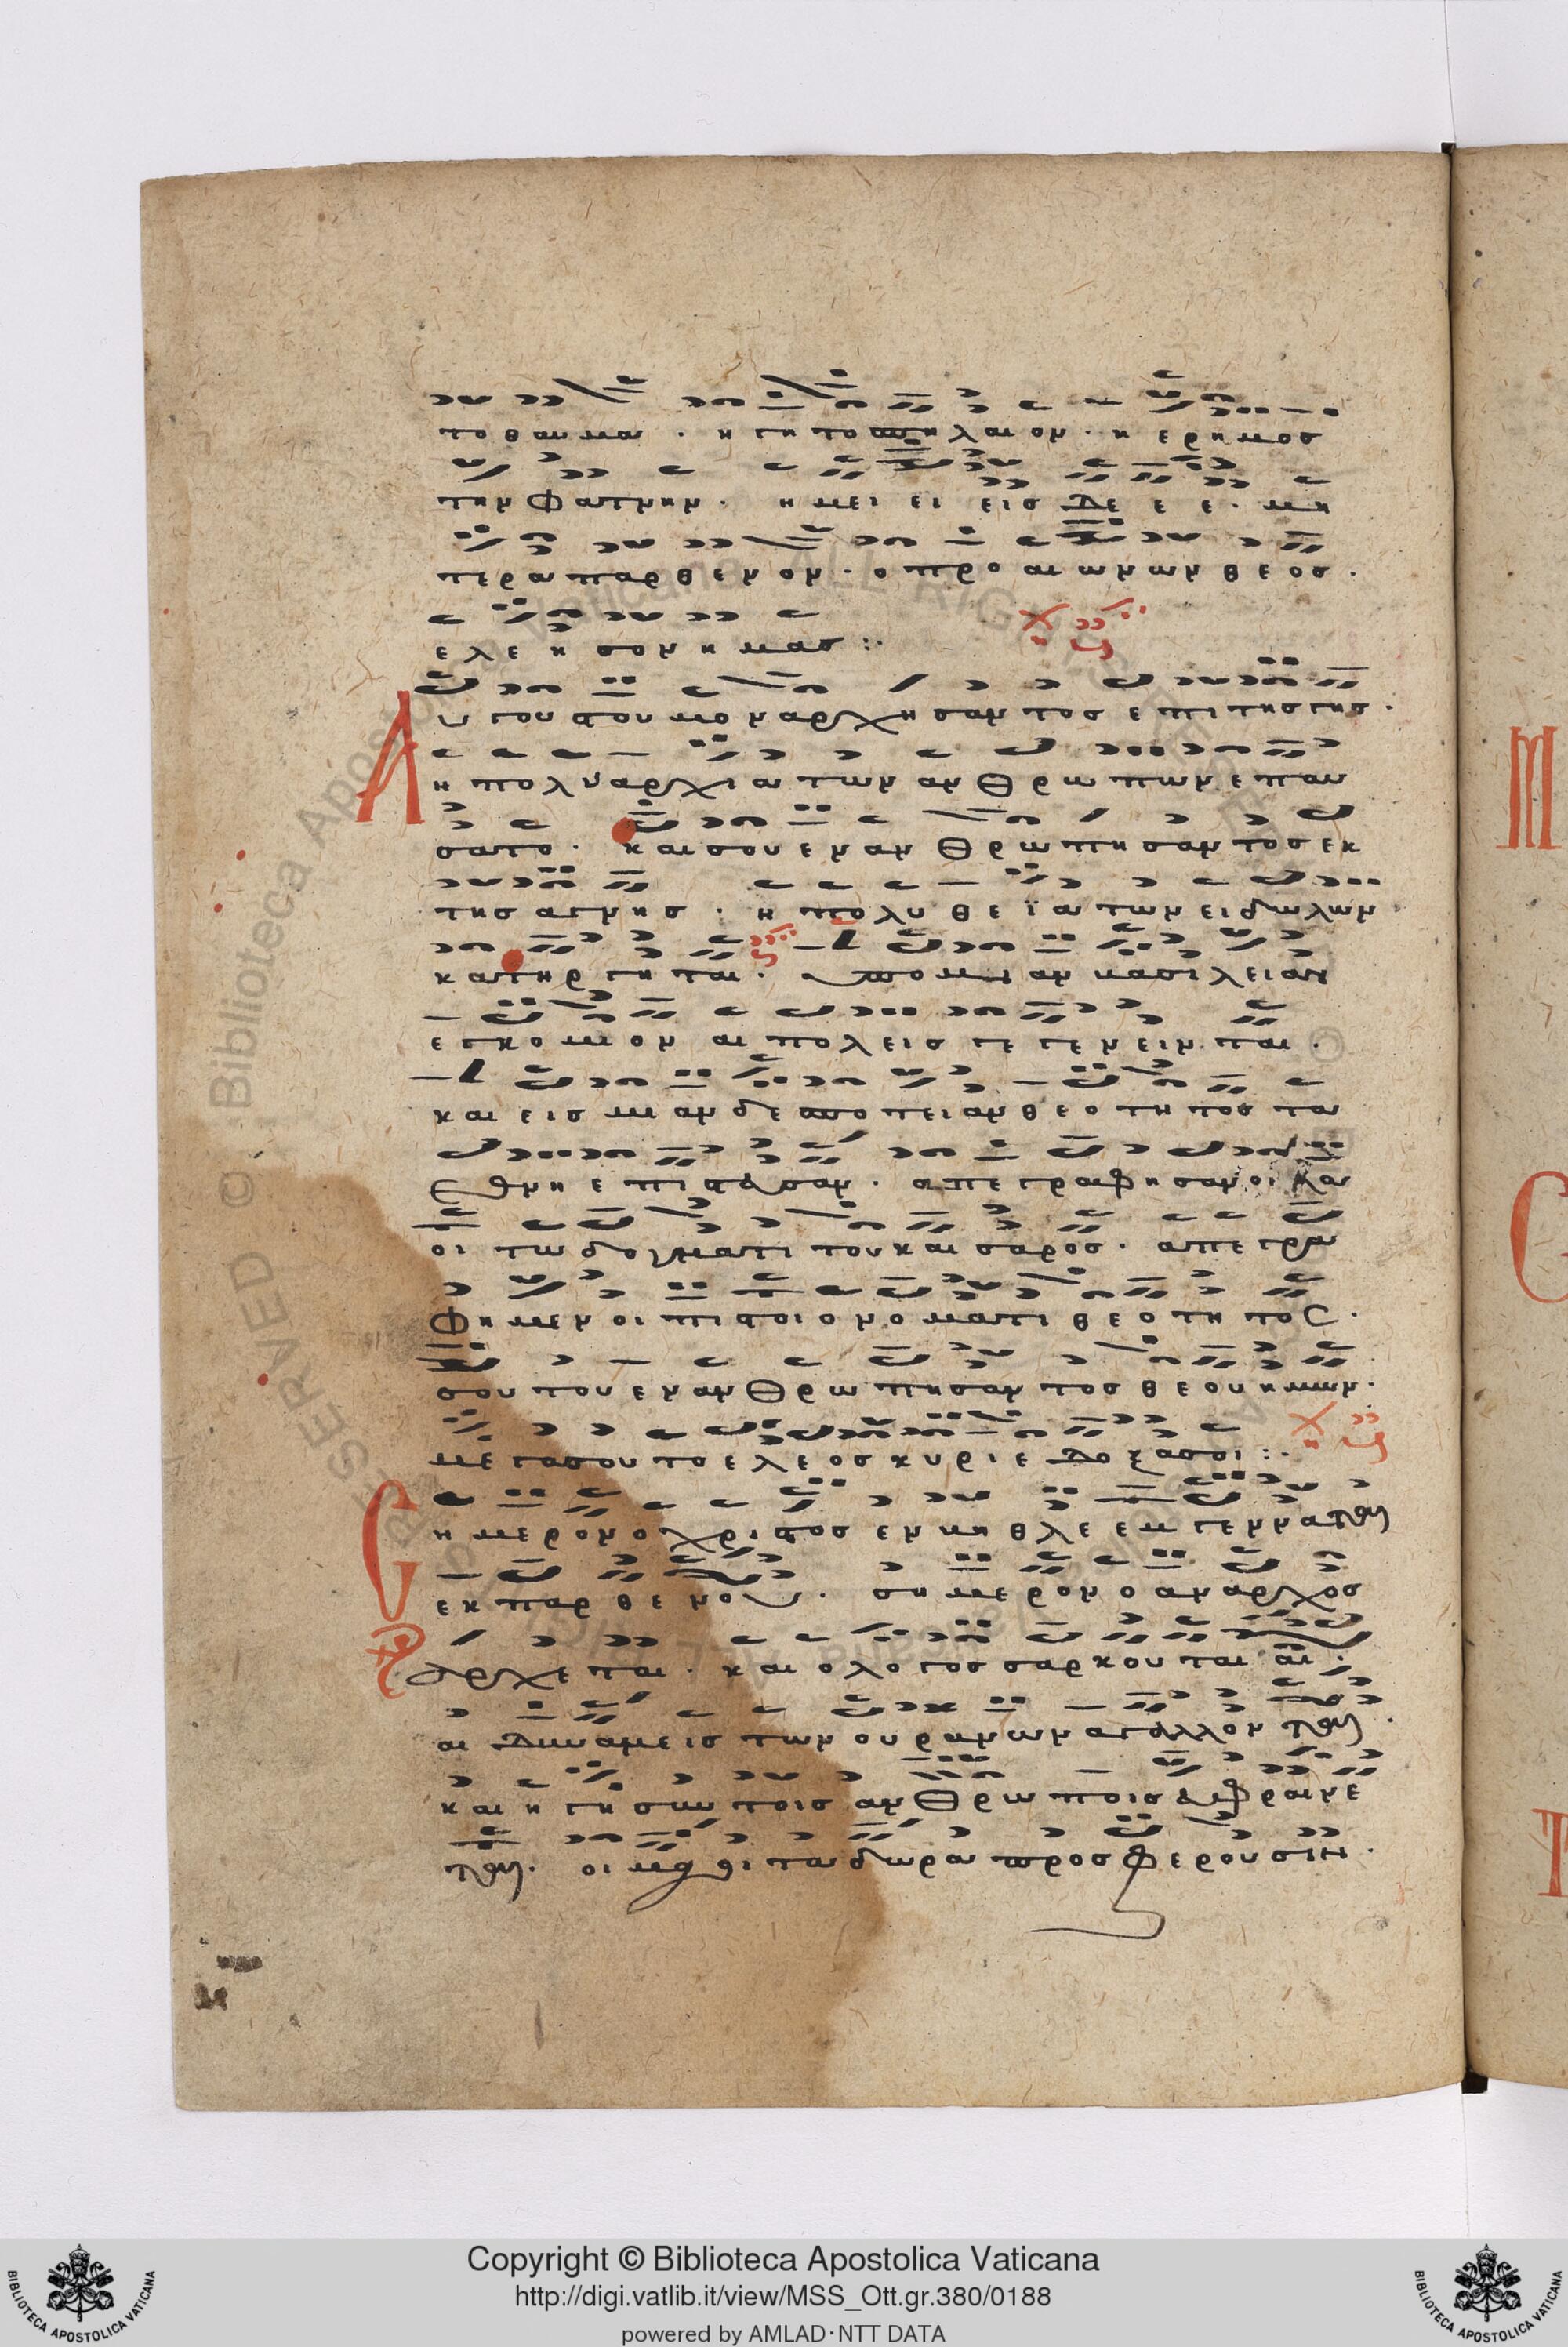 το θαυμα · η γη το σπηλαιον · η ερημος
την φατνην · ημει ει εις δε ε ε · μη
τερα παρθενον · ο προ αιωνων θεος ·
ελεησον ημας :·
Αυγουστου μοναρχησαντος επι της γης ·
η πολυαρχια των ανθρωπων επαυ
σατο · και σου ενανθρωπησαντος εκ
της αγνης · η πολυθεϊα των ειδωλων
κατηργηται · υπο μιαν βασιλειαν
εγκοσμιον αι πολεις γεγενεινται ·
και εις μιαν δεσποτειαν θεοτητος τα
εθνη επιστευσαν · απεγραφησαν οι λα
οι τω δογματι του καισαρος · απεγρα
φημεν οι πιστοι ονοματι θεοτητος ·
σου του ενανθρωπησαντος θεου ημων ·
μεγα σου το ελεος κυριε δοξα σοι :·
Σημερον ο χριστος εν βηθλεεμ γεννατ(αι)
εκ παρθενου · σημερον ο αναρχος
αρχεται · και ο λογος σαρκουται αι ·
αι δυναμεις των ουρανων αγαλλοντ(αι) ·
και η γη συν τοις ανθρωποις ευφραινε
τ(αι) · οι μαγοι τα δωρα προσφερουσιν ·
Copyright © Biblioteca Apostolica Vaticana
http://digi.vatlib.it/view/MSS_Ott.gr.380/0188
powered by AMLAD·NTT DATA